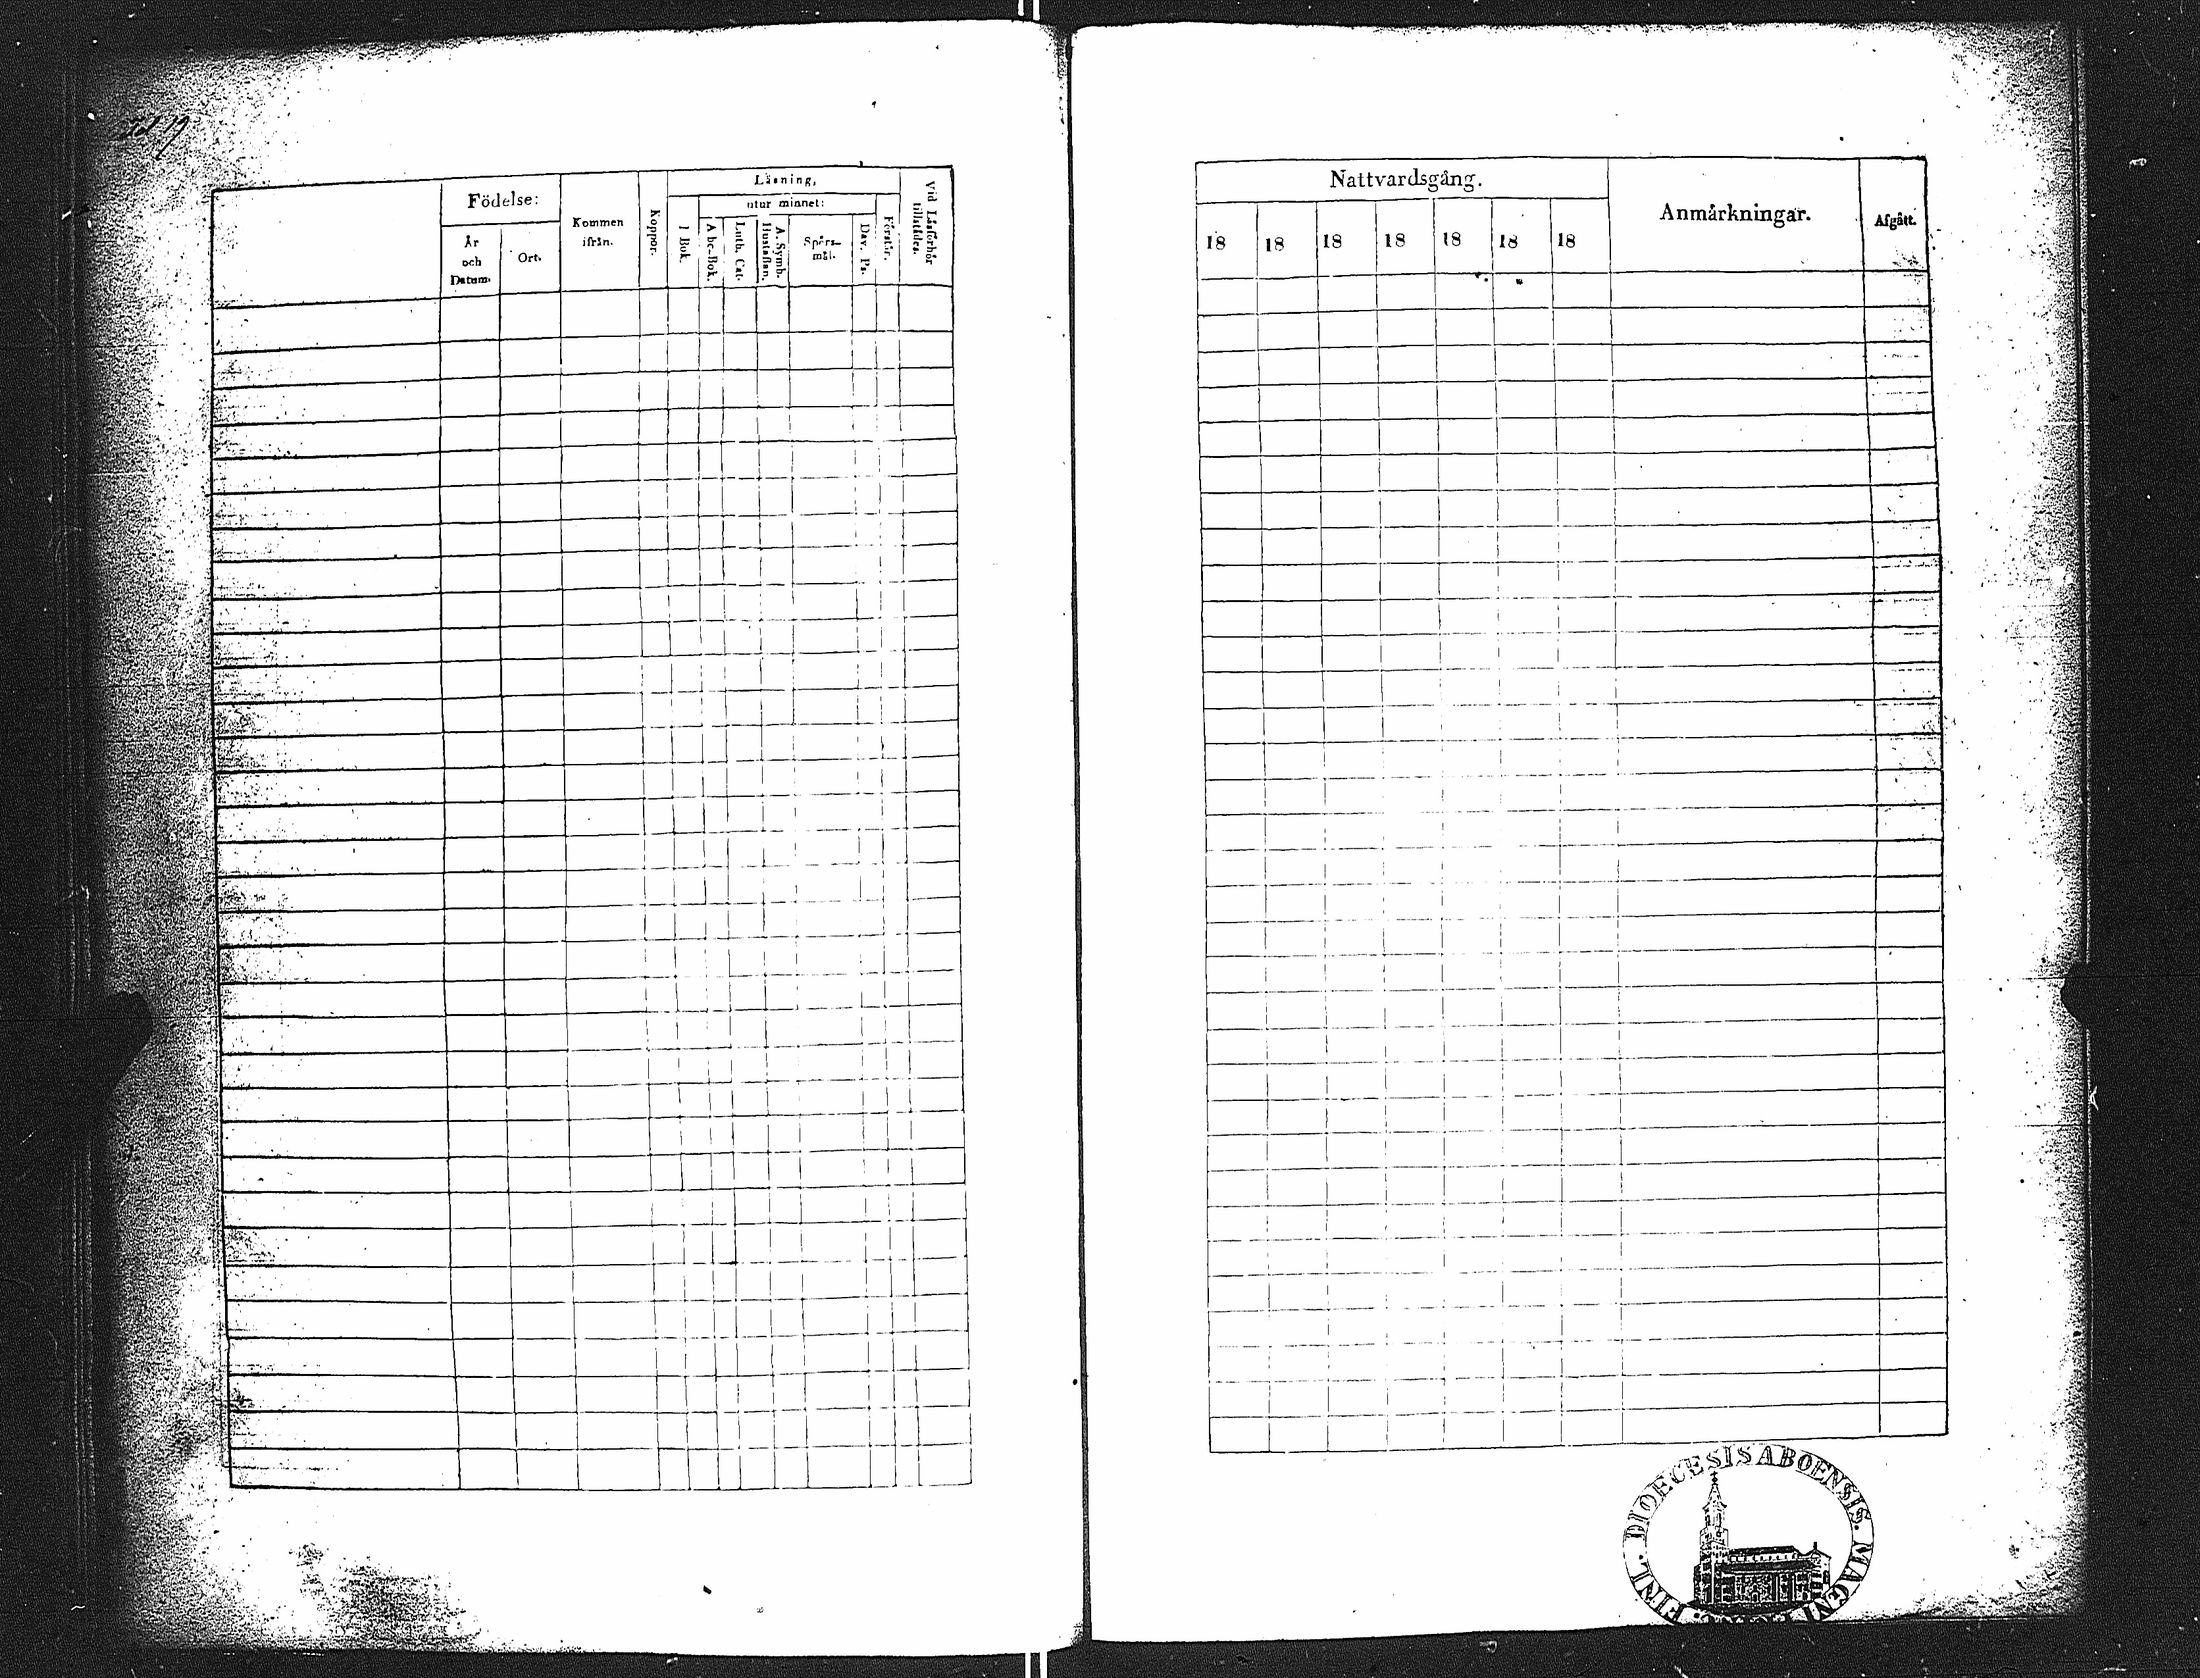 Födelse:
År
och
Datum.
Ort.
Kommen
ifrån.
Koppor.
Läsning,
utur minnet:
I Bok.
Abc-Bok.
Luth. Cat.
A. Symb.
Hustaflan.
Spörs-
mål.
Dav. Ps.
Förstår.
Vid Läsförhör
tillstädes.
Nattvardsgång.
18 18 18 18 18 18 18
Anmårkningar.
Afgått.
FINL. DIOECESIS ABOENSIS. MAGNI